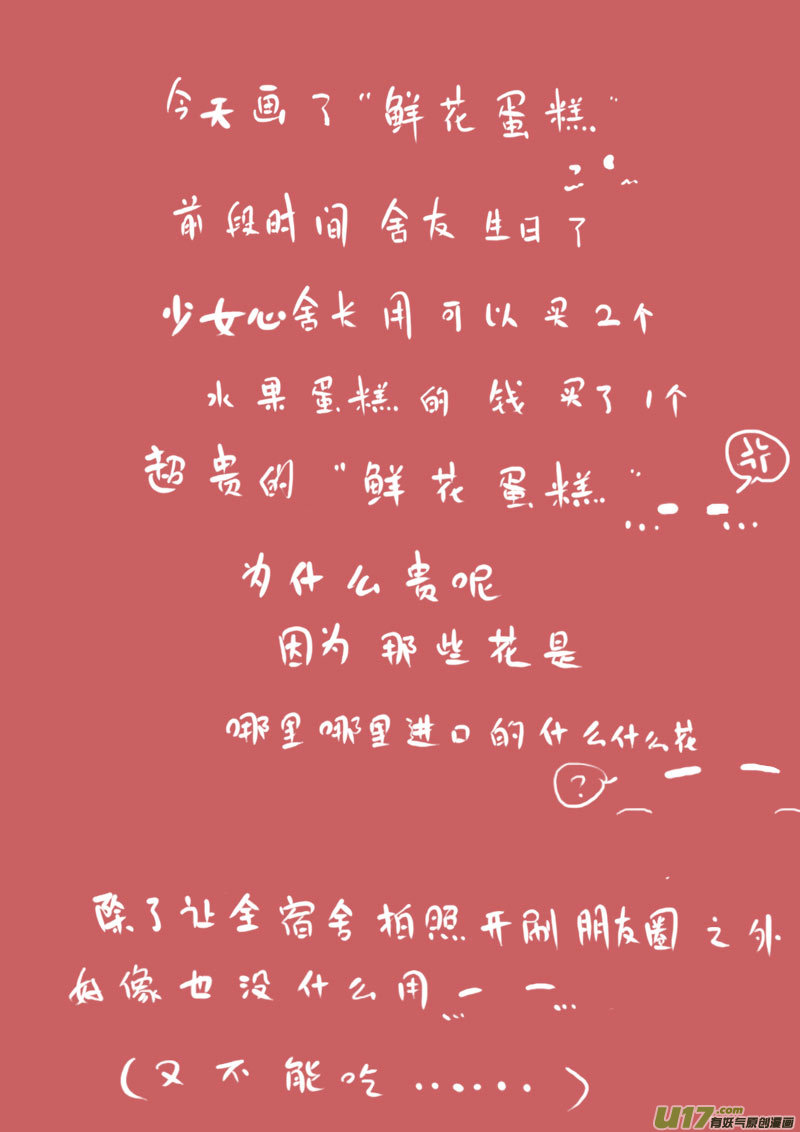 今天画了“鲜花蛋糕”
前段时间舍友生日了
少女心舍长用可以买2个
水果蛋糕的钱买了1个
超贵的“鲜花蛋糕”
为什么贵呢
因为那些花是
哪里哪里进口的什么什么花
?
除了让全宿舍拍照开刷朋友圈之外
好像也没什么用
(又不能吃......)
U17.com
有妖气原创漫画